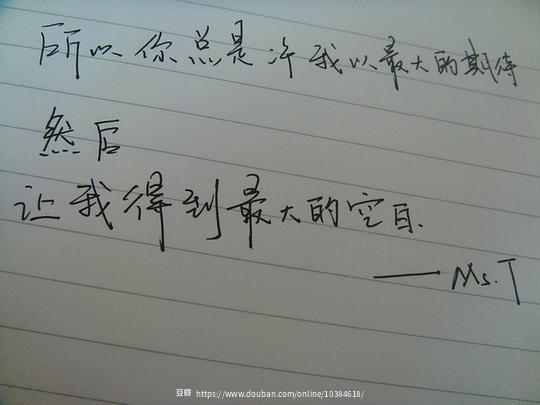 所以你总是许我以最大的期待
然后
让我得到最大的空白.
——Ms.T
豆瓣 https://www.douban.com/online/10384618/